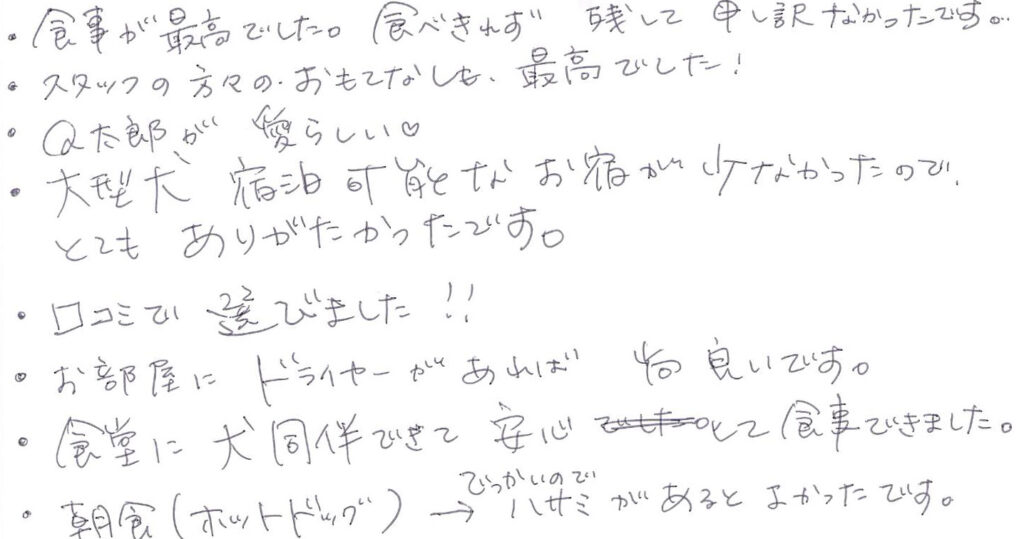 ・食事が最高でした。食べきれず 残して 申し訳なかったです。
・スタッフの方々の・おもてなしも、最高でした!
・Q太郎が 愛らしい♡
・大型犬 宿泊可能な お宿が 少なかったので、
とても ありがたかったです。
・口コミで 選びました!!
・お部屋に ドライヤーがあれば 尚良いです。
・食堂に 犬同伴できて 安心 でした。して食事できました。
・朝食(ホットドッグ)→ でっかいので ハサミがあると よかったです。